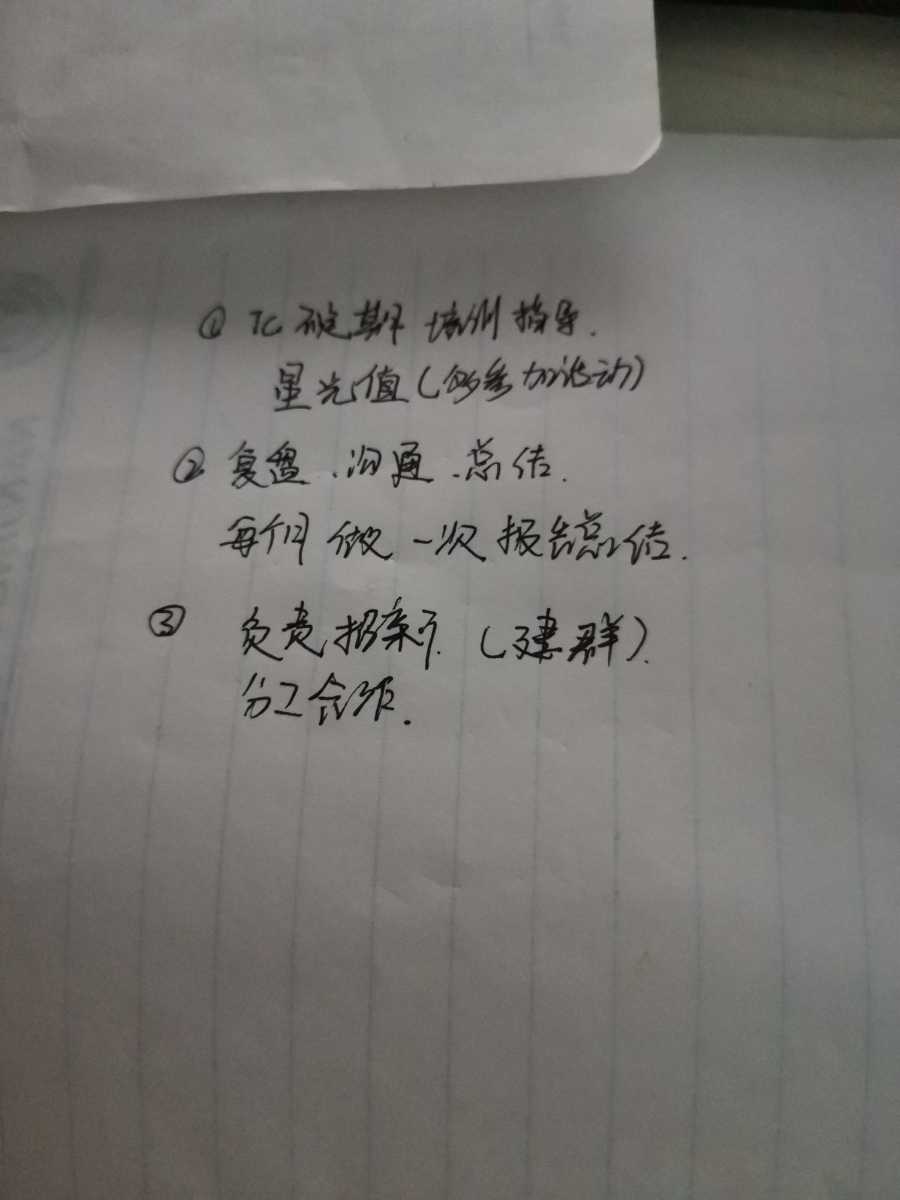 ① TC 确定其 培训指导.
星光值(多参加活动)
② 复盘、沟通、总结.
每个月做一次报告总结.
③ 负责招新.(建群).
分工合作.